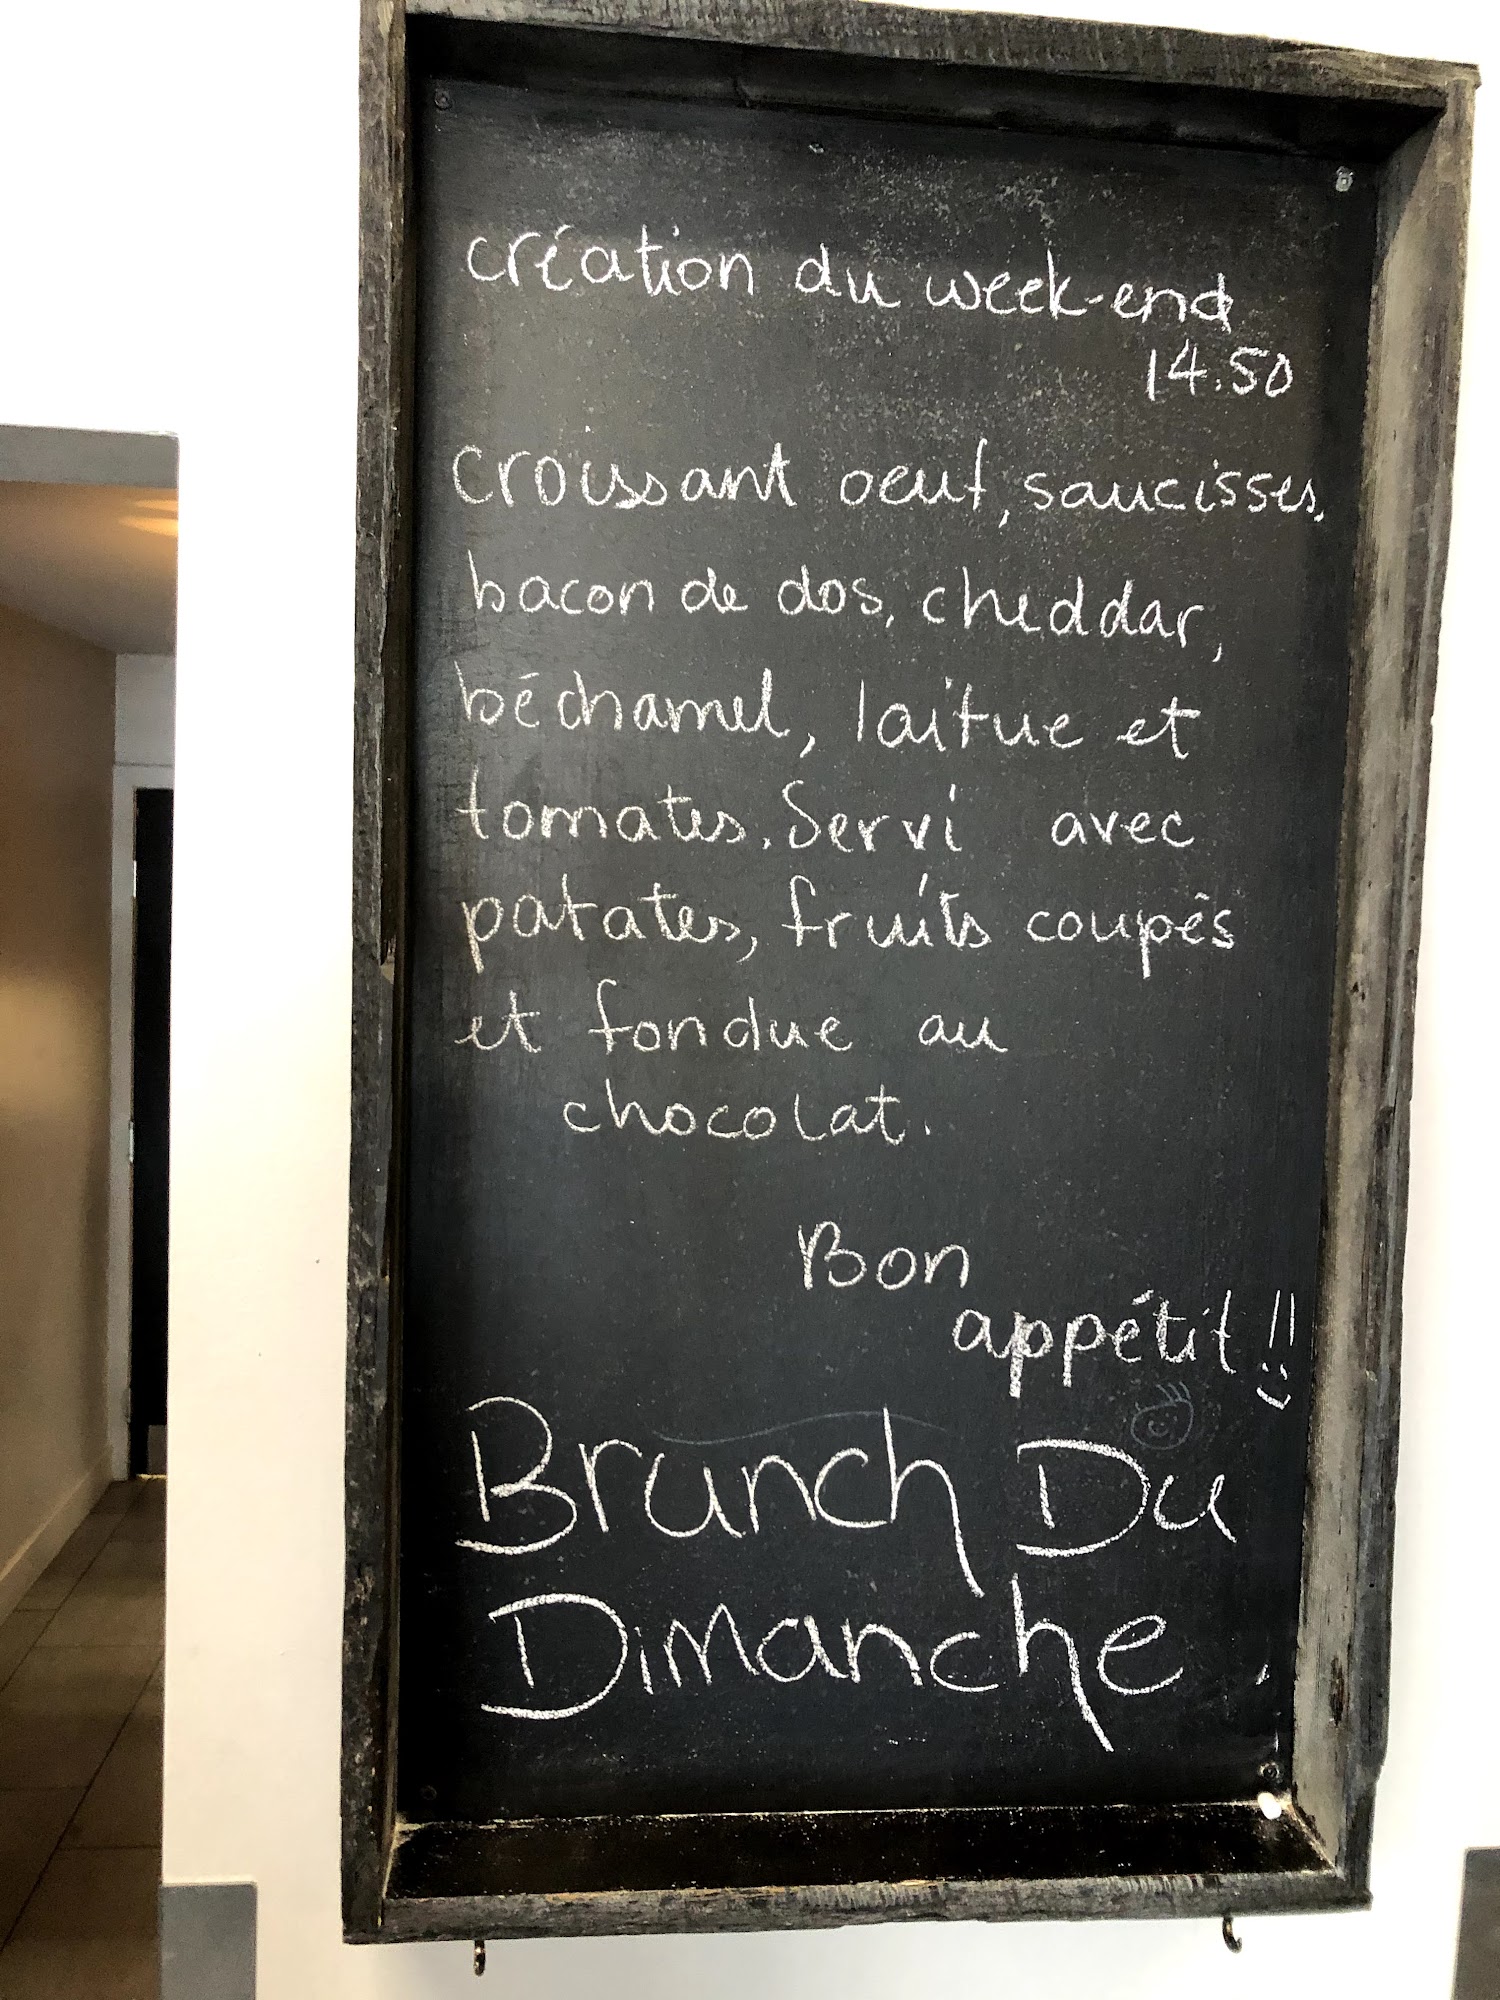 création du week-end
14.50
croissant oeuf, saucisses,
bacon de dos, cheddar,
béchamel, laitue et
tomates. Servi avec
patates, fruits coupés
et fondue au
chocolat.
Bon
appétit !!
Brunch Du
Dimanche.